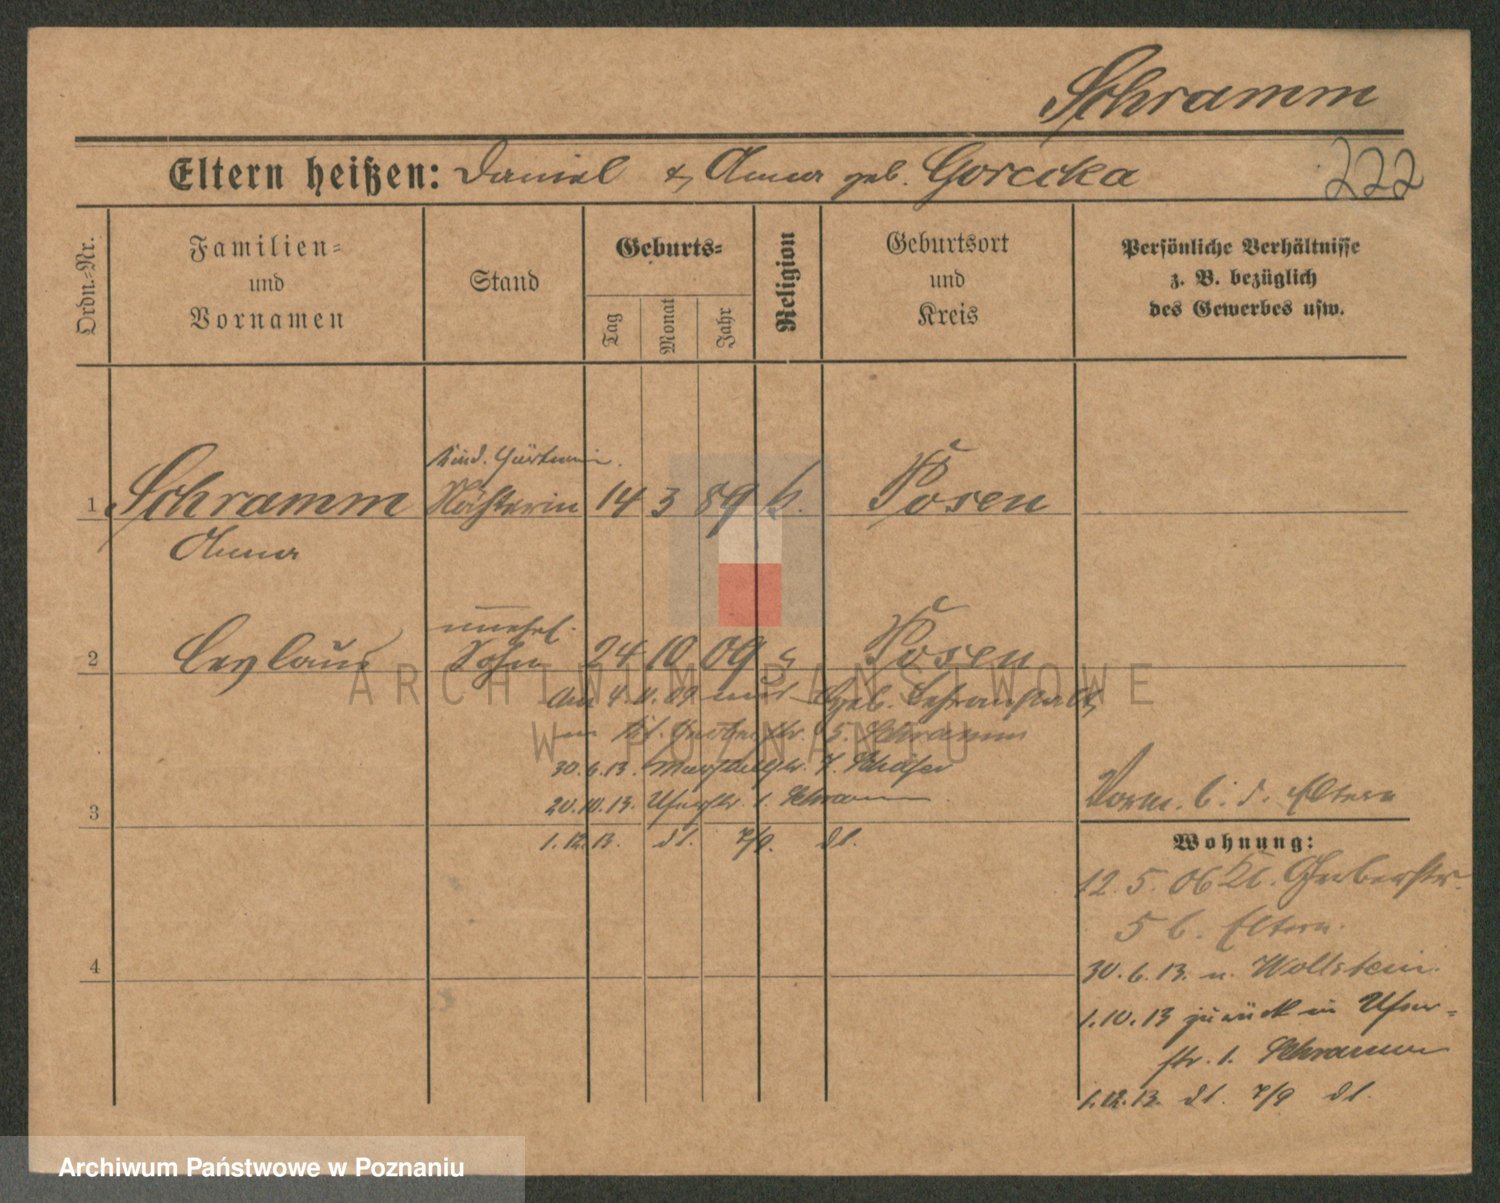 Schramm
Eltern heißen: Daniel & Anna geb. Gorecka
222
Ordn.-Nr.
Familien-
und
Vornamen
Stand
Geburts-
Tag
Monat
Jahr
Religion
Geburtsort
und
Kreis
Persönliche Verhältnisse
z. B. bezüglich
des Gewerbes usw.
Kind. Gärtnerin.
1 Schramm Näherin 14 3 89 k. Posen
Anna
unehel.
2 Ceslaus Sohn 24 10 09 Posen
ARCHIWUM PAŃSTWOWE
W POZNANIU
Am 4. 11. 09 aus Hgeb. Lehranstalt
Kl. Gerberstr. 5. Schramm
30.6.13. 7. Schäfer
20.10.13. Uferstr. 1. Schramm
1.12.13. dl. 7/9. dl.
Vorm. b. d. Eltern
3
Wohnung:
12.5.06 Kl. Gerberstr.
5 b. Eltern.
30.6.13. n. Wollstein.
4
1.10.13 zurück in Ufer-
str. 1. Schramm
1.12.13. dl. 7/9 dl.
Archiwum Państwowe w Poznaniu